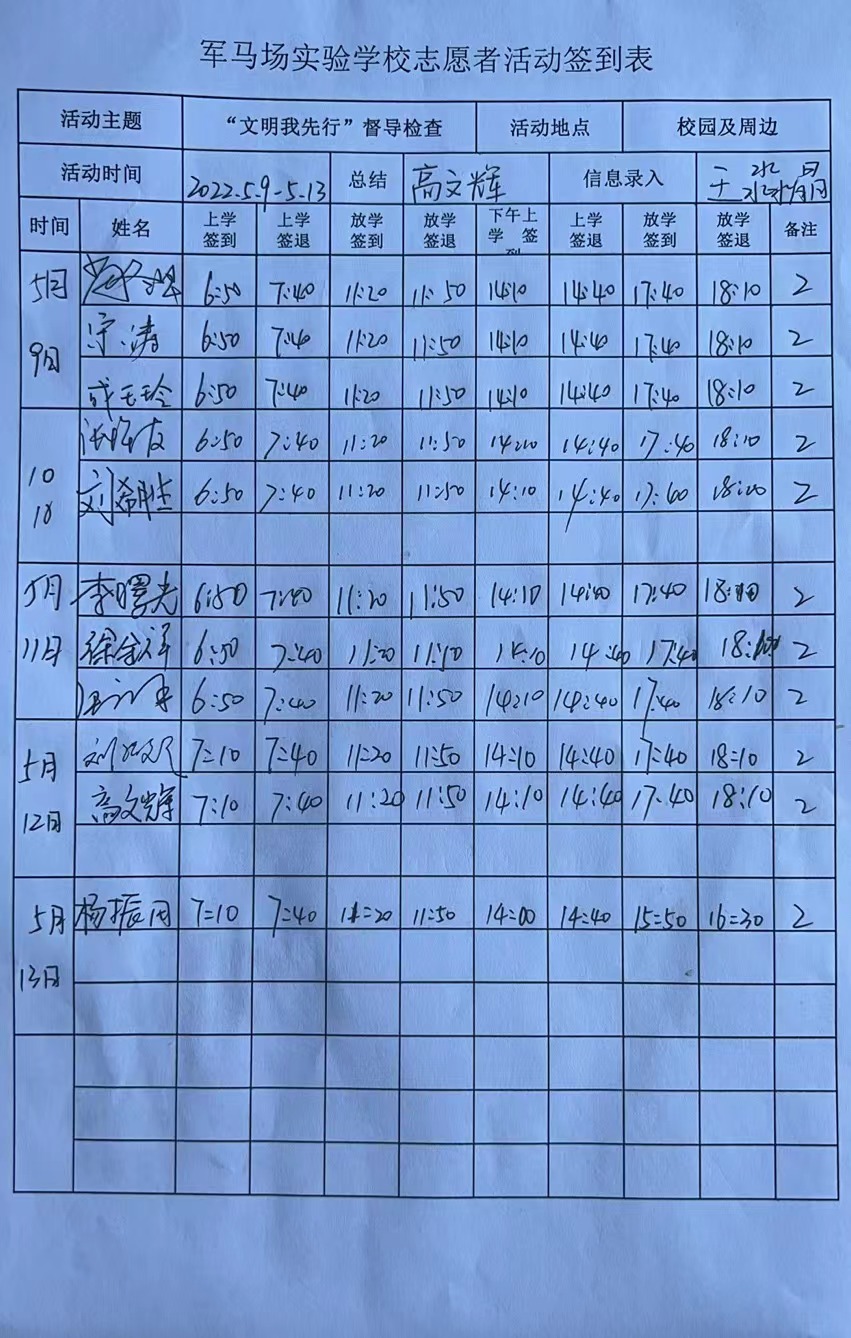 军马场实验学校志愿者活动签到表
活动主题 “文明我先行”督导检查 活动地点 校园及周边
活动时间 2022.5.9-5.13 总结 高文辉 信息录入 王
时间 姓名 上学签到 上学签退 放学签到 放学签退 下午上学签到 上学签退 放学签到 放学签退 备注
5日 6:50 7:40 11:20 11:50 14:10 14:40 17:40 18:10 2
9日 宗涛 6:50 7:40 11:20 11:50 14:10 14:40 17:40 18:10 2
成玉玲 6:50 7:40 11:20 11:50 14:10 14:40 17:40 18:10 2
6:50 7:40 11:20 11:50 14:10 14:40 17:40 18:10 2
10 刘希胜 6:50 7:40 11:20 11:50 14:10 14:40 17:40 2
5月 李曙光 6:50 7:40 11:20 11:50 14:10 14:40 17:40 18:10 2
11日 徐金祥 6:50 7:40 11:20 14:40 17:40 2
6:50 7:40 11:20 11:50 14:10 14:40 17:40 18:10 2
5月 7=10 7=40 11=20 11=50 14=10 14=40 17=40 18=10 2
12日 高文辉 7:10 7:40 11:20 11:50 14:10 14:40 17:40 18:10 2
5月 杨振田 7=10 7=40 11=20 11=50 14=00 14=40 15=50 16=30 2
13日